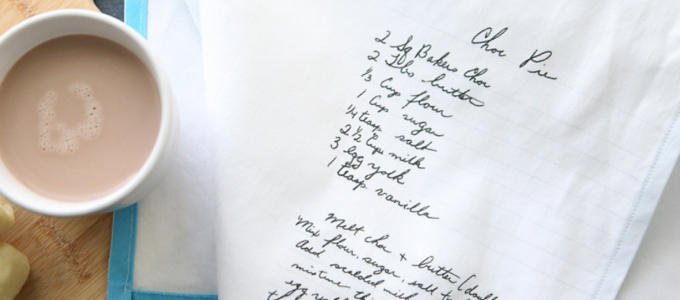 Choc Pie
2 Sq Bakers Choc
2 Tbs butter
1/3 Cup flour
1 Cup sugar
1/4 teasp salt
2 1/2 Cups milk
3 egg yolk
1 teasp vanilla
Melt choc + butter (doubl
Mix flour, sugar, salt t
Add scalded milk
mixture thi
egg yolk